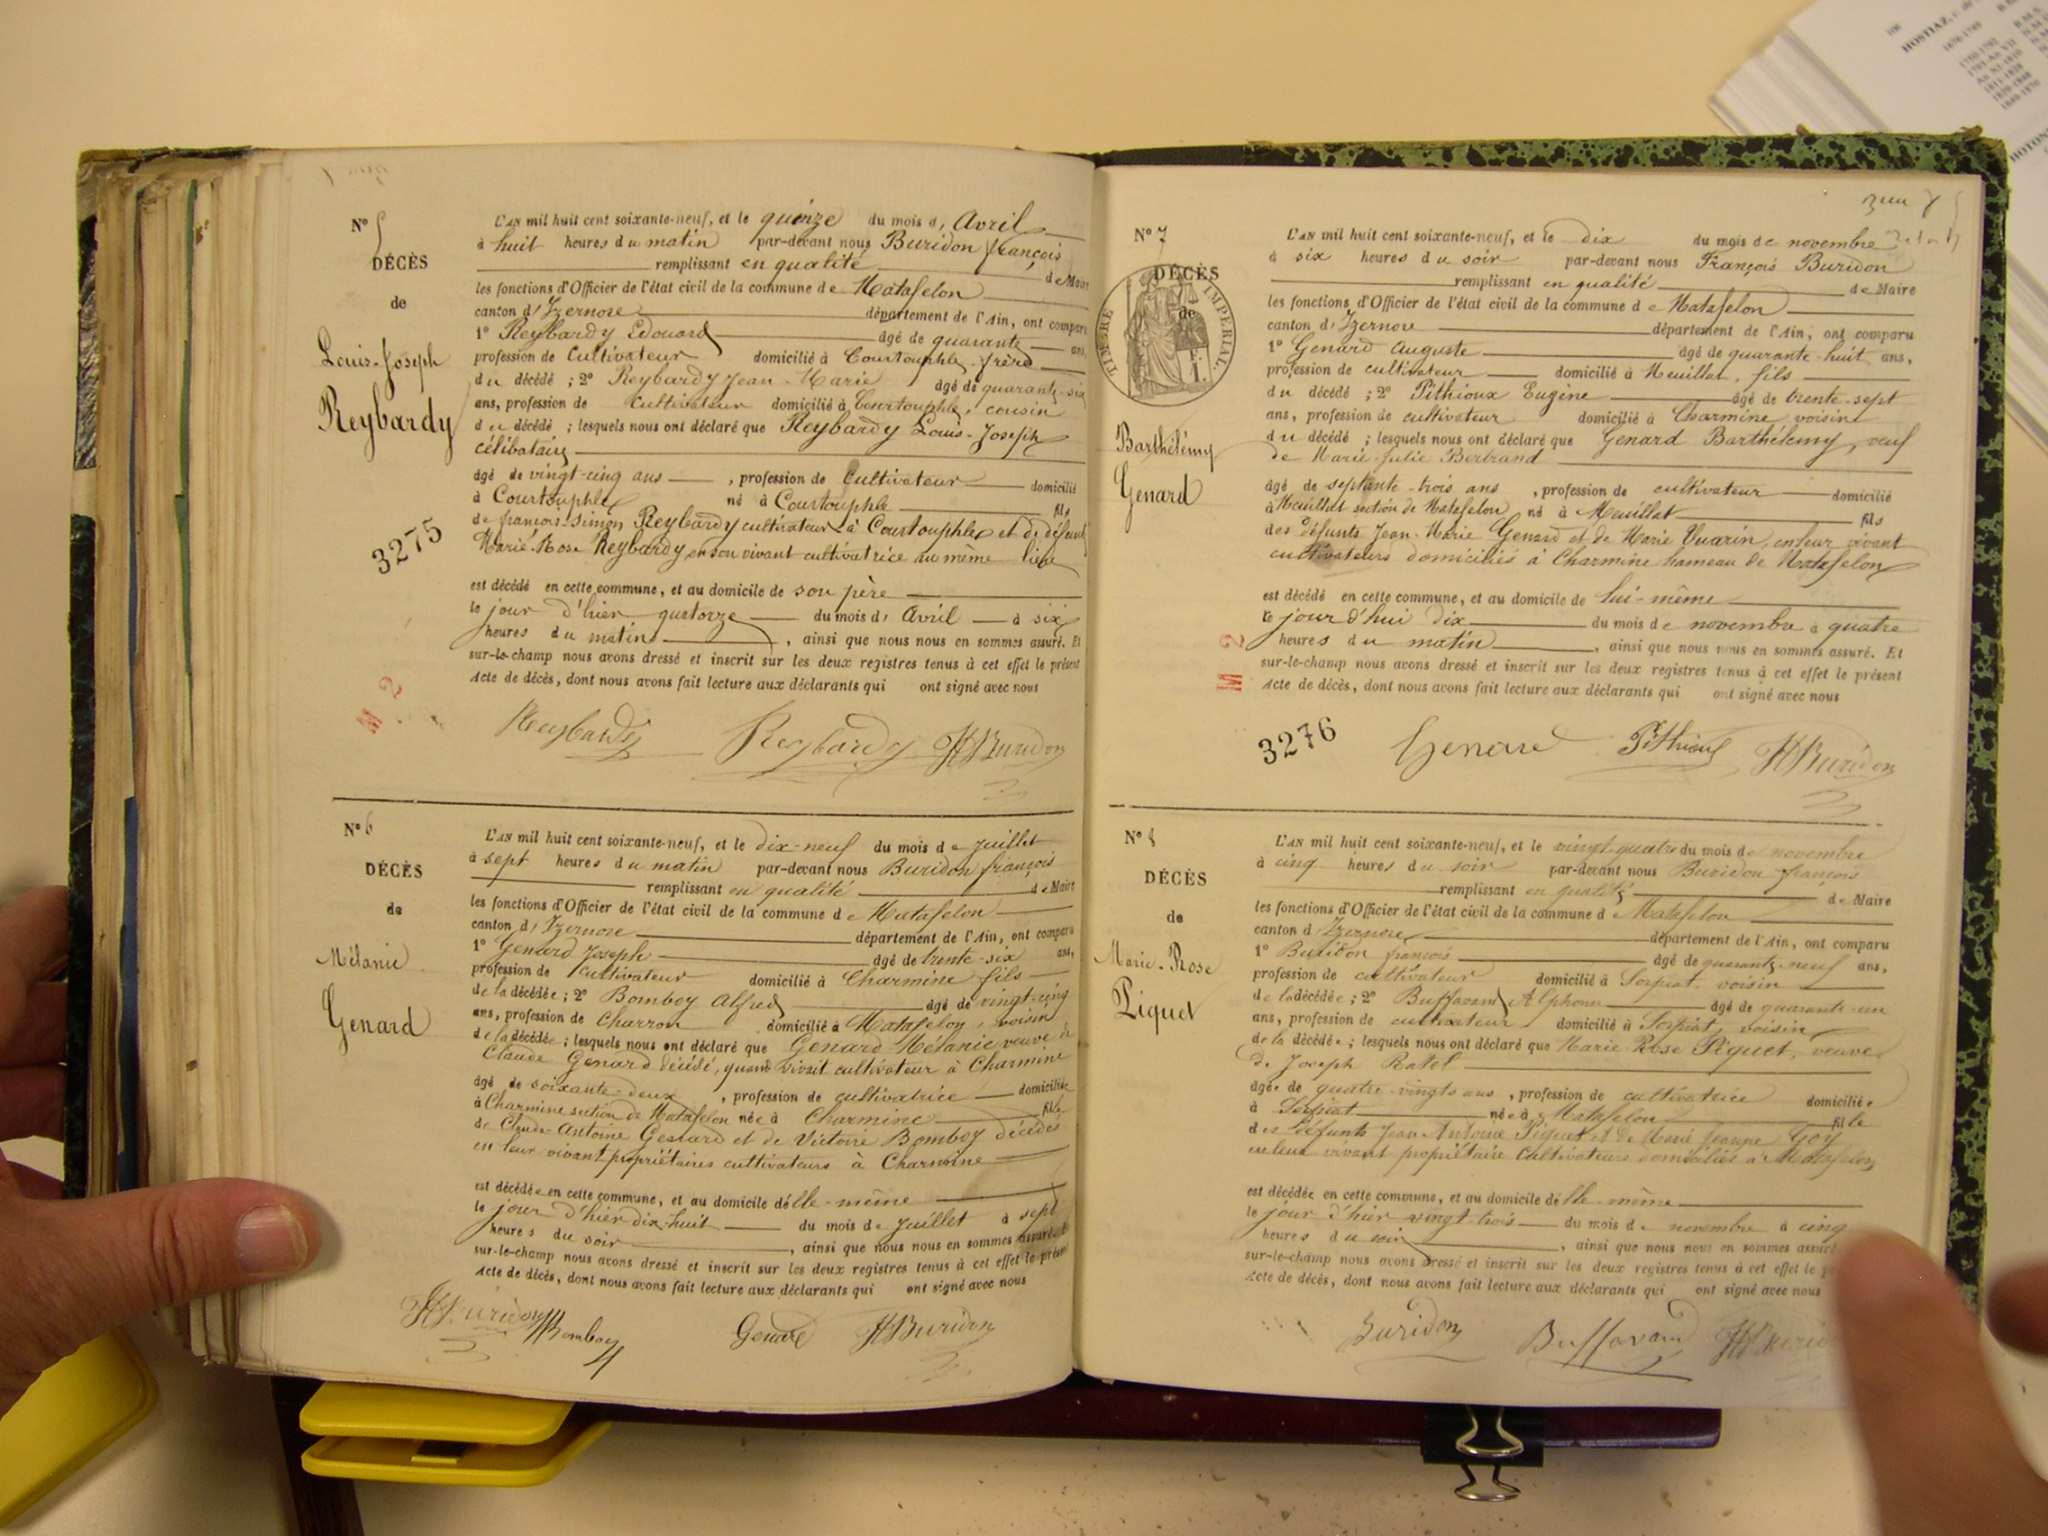 N° 5
DÉCÈS
de
Louis-Joseph
Reybardy
3275
M 2
L'AN mil huit cent soixante-neuf, et le quinze du mois d'Avril
à huit heures du matin par-devant nous Buridon françois
remplissant en qualité de Maire
les fonctions d'Officier de l'état civil de la commune de Matafelon
canton d'Izernore département de l'Ain, ont comparu
1° Reybardy Edouard âgé de quarante ans,
profession de Cultivateur domicilié à Courtouphle, frère
du décédé ; 2° Reybardy Jean-Marie âgé de quarante-six
ans, profession de cultivateur domicilié à Courtouphle, cousin
du décédé ; lesquels nous ont déclaré que Reybardy Louis-Joseph
célibataire
âgé de vingt-cinq ans, profession de Cultivateur domicilié
à Courtouphle né à Courtouphle fils
de françois-Simon Reybardy cultivateur à Courtouphle et de défunte
Marie-Rose Reybardy en son vivant cultivatrice au même lieu
est décédé en cette commune, et au domicile de son père
le jour d'hier quatorze du mois d'Avril à six
heures du matin, ainsi que nous nous en sommes assuré. Et
sur-le-champ nous avons dressé et inscrit sur les deux registres tenus à cet effet le présent
Acte de décès, dont nous avons fait lecture aux déclarants qui ont signé avec nous
Reybardy Reybardy Buridon
N° 6
DÉCÈS
de
Mélanie
Genard
L'AN mil huit cent soixante-neuf, et le dix-neuf du mois de Juillet
à sept heures du matin par-devant nous Buridon françois
remplissant en qualité de Maire
les fonctions d'Officier de l'état civil de la commune de Matafelon
canton d'Izernore département de l'Ain, ont comparu
1° Genard Joseph âgé de trente-six ans,
profession de cultivateur domicilié à Charmine fils
de la décédée ; 2° Bomboy Alfred âgé de vingt-cinq
ans, profession de Charron domicilié à Matafelon, voisin
de la décédée ; lesquels nous ont déclaré que Genard Mélanie veuve de
Claude Genard décédé, quand vivait cultivateur à Charmine
âgé de soixante-deux, profession de cultivatrice domiciliée
à Charmine section de Matafelon née à Charmine fille
de Claude-Antoine Genard et de Victoire Bomboy décédés
en leur vivant propriétaires cultivateurs à Charmine
est décédée en cette commune, et au domicile d'elle-même
le jour d'hier dix-huit du mois de Juillet à sept
heures du soir, ainsi que nous nous en sommes assuré. Et
sur-le-champ nous avons dressé et inscrit sur les deux registres tenus à cet effet le présent
Acte de décès, dont nous avons fait lecture aux déclarants qui ont signé avec nous
Buridon Bomboy Genard Buridon
N° 7
DÉCÈS
de
TIMBRE IMPÉRIAL
Barthélémy
Genard
M 2
3276
L'AN mil huit cent soixante-neuf, et le dix du mois de novembre
à six heures du soir par-devant nous François Buridon
remplissant en qualité de Maire
les fonctions d'Officier de l'état civil de la commune de Matafelon
canton d'Izernore département de l'Ain, ont comparu
1° Genard Auguste âgé de quarante-huit ans,
profession de cultivateur domicilié à Meuillat, fils
du décédé ; 2° Pithioux Eugène âgé de trente-sept
ans, profession de cultivateur domicilié à Charmine voisin
du décédé ; lesquels nous ont déclaré que Genard Barthélemy, veuf
de Marie-Julie Bertrand
âgé de septante-trois ans, profession de cultivateur domicilié
à Meuillat section de Matafelon né à Meuillat fils
des défunts Jean-Marie Genard et de Marie Vuarin, en leur vivant
cultivateurs domiciliés à Charmine hameau de Matafelon
est décédé en cette commune, et au domicile de lui-même
le jour d'hui dix du mois de novembre à quatre
heures du matin, ainsi que nous nous en sommes assuré. Et
sur-le-champ nous avons dressé et inscrit sur les deux registres tenus à cet effet le présent
Acte de décès, dont nous avons fait lecture aux déclarants qui ont signé avec nous
Genard Pithioux Buridon
N° 8
DÉCÈS
de
Marie-Rose
Piquet
L'AN mil huit cent soixante-neuf, et le vingt-quatre du mois de novembre
à cinq heures du soir par-devant nous Buridon françois
remplissant en qualité de Maire
les fonctions d'Officier de l'état civil de la commune de Matafelon
canton d'Izernore département de l'Ain, ont comparu
1° Buridon françois âgé de quarante-neuf ans,
profession de cultivateur domicilié à Sorpiat voisin
de la décédée ; 2° Buffavand Alphonse âgé de quarante-un
ans, profession de cultivateur domicilié à Sorpiat, voisin
de la décédée ; lesquels nous ont déclaré que Marie Rose Piquet, veuve
de Joseph Ratel
âgée de quatre-vingts ans, profession de cultivatrice domiciliée
à Sorpiat née à Matafelon fille
des défunts Jean Antoine Piquet et de Marie Jeanne Goy
en leur vivant propriétaire Cultivateurs domiciliés à Matafelon
est décédée en cette commune, et au domicile d'elle-même
le jour d'hier vingt-trois du mois de novembre à cinq
heures du soir, ainsi que nous nous en sommes assuré
sur-le-champ nous avons dressé et inscrit sur les deux registres tenus à cet effet le
Acte de décès, dont nous avons fait lecture aux déclarants qui ont signé avec nous
Buridon Buffavand
HOSTIAZ